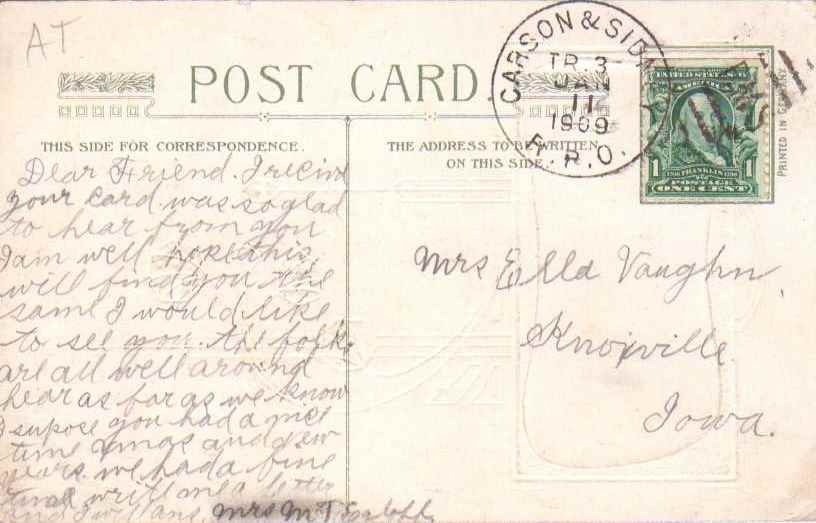 AT
POST CARD.
THIS SIDE FOR CORRESPONDENCE.
THE ADDRESS TO BE WRITTEN
ON THIS SIDE.
CARSON & SID
TR. 3
JAN
11
1909
R.P.O.
UNITED STATES
1 FRANKLIN 1
POSTAGE
ONE CENT
PRINTED IN GERMANY
Dear Friend. I recivd
your card was so glad
to hear from you
I am well hope this
will find you the
same I would like
to see you. the folks
are all well around
hear as far as we know
I supose you had a nice
time xmas and new
years. we had a fine
time write me a letter
and I will ans. Mrs M T
Mrs Ella Vaughn
Knoxville
Iowa.